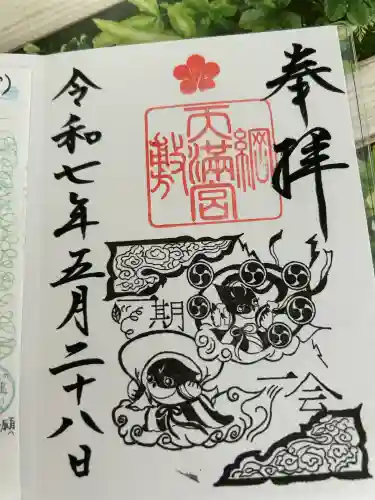 奉拝
綱敷天満宮
一期一会
令和七年五月二十八日